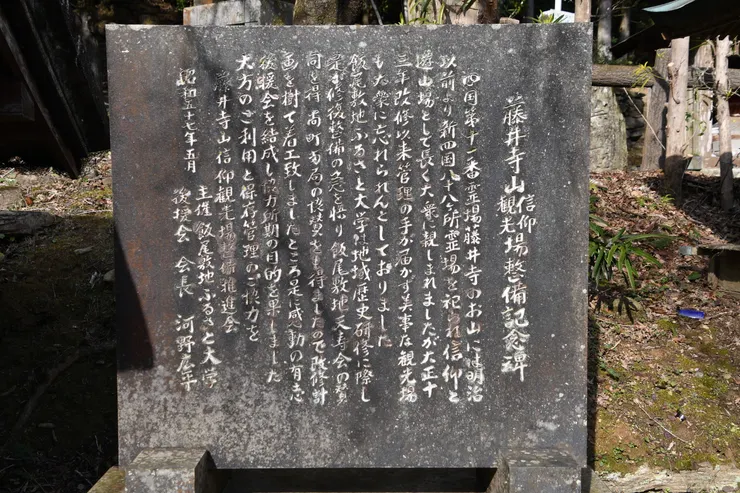 藤井寺山信仰観光場整備記念碑
四国第十一番霊場藤井寺のお山には明治
以前より新四国八十八ヶ所霊場を祀られ信仰と
遊山場として長く大衆に親しまれましたが大正十
三年改修以来管理の手が届かず美事な観光場
もた衆に忘れられんとしておりました
飯尾敷地ふるさと大学地域歴史研修に際し
是が修復整備の急を悟り飯尾敷地天寿会の賛
同を得 尚町当局の援護をも得ましたので改修計
画を樹て着工致しましたところ是に感動の有志
後援会を結成し協力所期の目的を果しました
大方のご利用と保存管理のご協力を
藤井寺山信仰観光場整備推進会
主催 飯尾敷地ふるさと大学
後援会 会長 河野
昭和五十七年五月